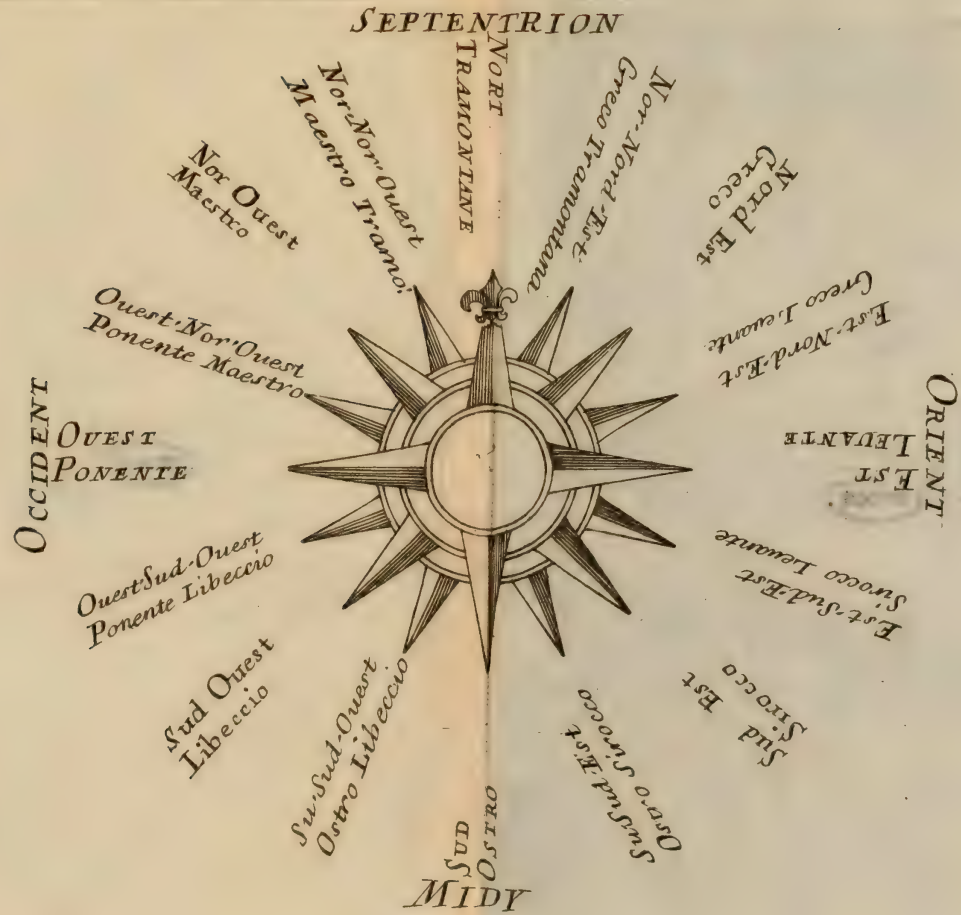 SEPTENTRION
NORT
TRAMONTANE
Nor-Nord-Est
Greco Tramontana
Nord Est
Greco
Est-Nord-Est
Greco Leuante
ORIENT
EST
LEUANTE
Est-Sud-Est
Sirocco Leuante
Sud Est
Sirocco
SuSud-Est
Osvro Sirocco
MIDY
SUD
OSTRO
Su-Sud-Ouest
Ostro Libeccio
Sud Ouest
Libeccio
Ouest-Sud-Ouest
Ponente Libeccio
OCCIDENT
OUEST
PONENTE
Ouest-Nor-Ouest
Ponente Maestro
Nor Ouest
Maestro
Nor-Nor-Ouest
Maestro Tramo.